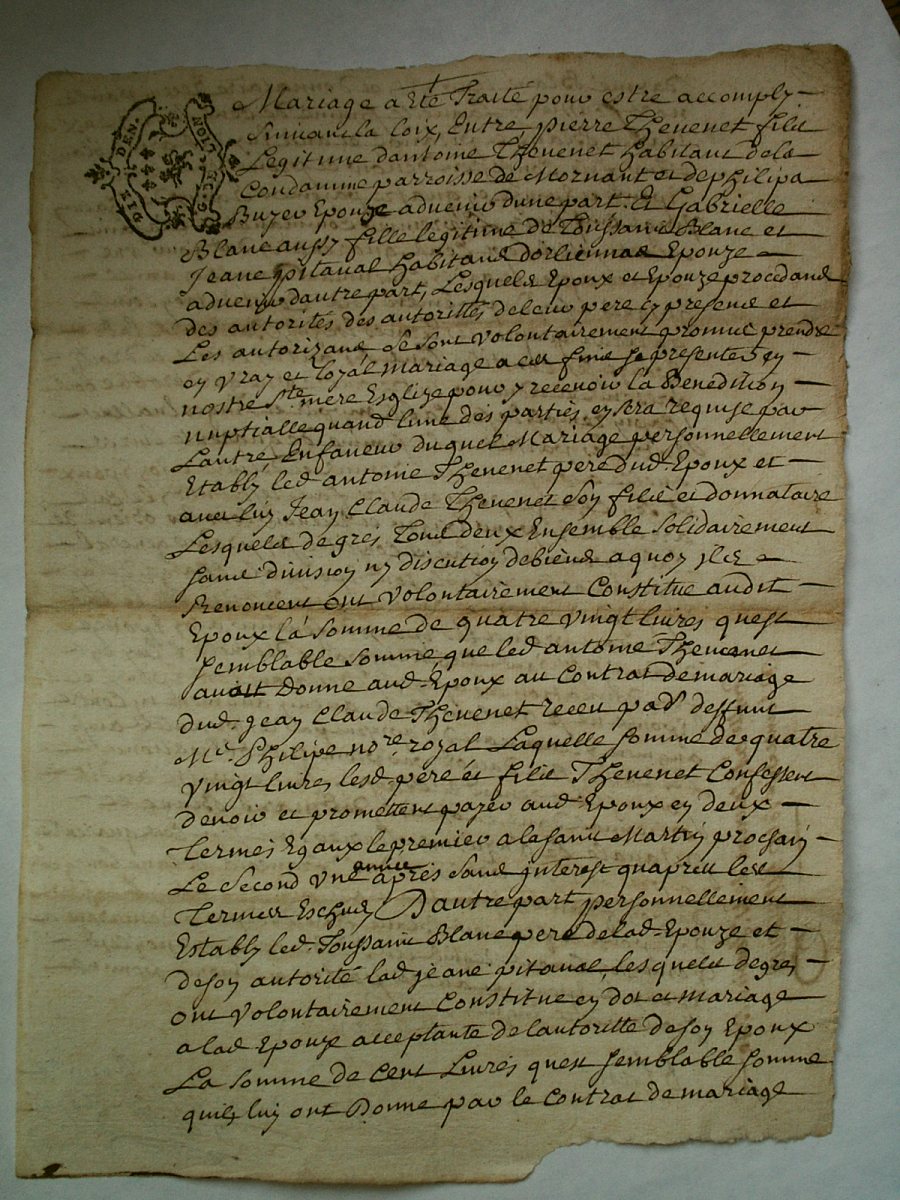 Mariage a êté Traité pour estre accomply
Suivant la loix, Entre pierre Thevenet fils
Legitime dantoine Thevenet habitant de la
Condamine parroisse de Mornant et de philipa
Buyer Epouze advenir dune part. Et Gabrielle
Blanc aussy fille legitime de Toussaint Blanc et
Jeane pitaval habitans dorliennas Epouze
advenir dautre part, Lesquels Epoux et Epouze procedans
des autorités des autorittés de leur pere cy presens et
Les autorizans se sont volontairement promis prendre
en vray et loyal Mariage a ces fins se presenter en
nostre Ste. mere Esglize pour y recevoir la Benediction
nuptialle quand lune des parties en sera requise par
Lautre, En faveur duquel Mariage personnellement
Etably led. antoine Thevenet pere dud. Epoux et
avec luy Jean Claude Thevenet son fils et donnataire
Lesquels de gres Tous deux Ensemble solidairement
sans division ny discution de biens a quoy ils
Renoncent ont volontairement Constitue audit
Epoux la somme de quatre vingt livres quest
semblable somme que led. antoine Thevenet
avoit Donne aud. Epoux au Contrat de mariage
dud. jean Claude Thevenet receu par deffunt
Me. Philipe nore. royal Laquelle somme de quatre
vingt livres lesd. pere et fils Thevenet Confessent
devoir et promettent payer aud. Epoux en deux
Termes Egaux le premier a la saint Martin prochain
Le second une année après sans interest quapres les
Termes Eschus, Dautre part personnellement
Estably led. Toussaint Blanc pere de lad. Epouze et
de son autorité lad. jeane pitaval lesquels de gres,
ont volontairement Constitue en dot et mariage
a lad. Epouze acceptante de lautoritte de son Epoux
La somme de Cent Livres quest semblable somme
quils luy ont Donne par le Contrat de mariage